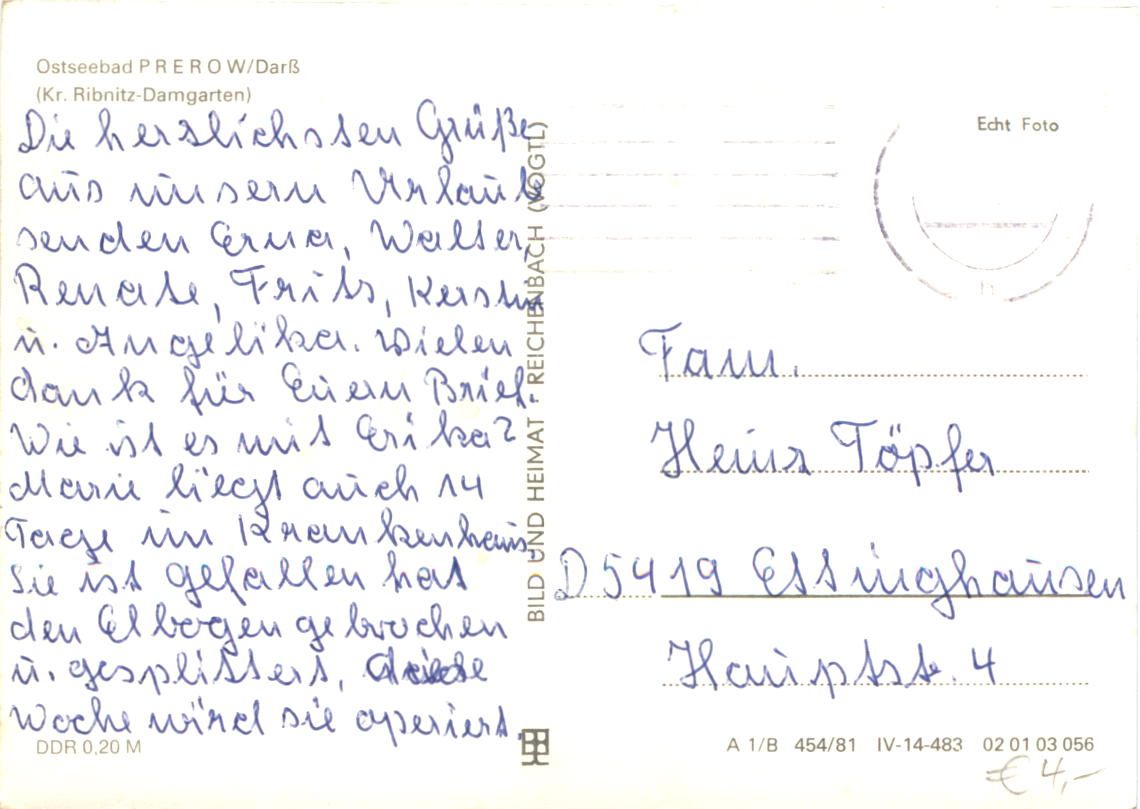 Ostseebad PREROW/Darß
(Kr. Ribnitz-Damgarten)
Die herzlichsten Grüße
aus unsern Urlaub
senden Erna, Walter,
Renate, Fritz, Kerstin
u. Angelika. Vielen
dank für Euern Brief.
Wie ist es mit Erika?
Marie liegt auch 14
Tage im Krankenhaus,
Sie ist gefallen hat
den Elbogen gebrochen
u. gesplittert, diese
Woche wird sie operiert.
DDR 0,20 M
BILD UND HEIMAT REICHENBACH (VOGTL)
Echt Foto
Fam.
Heinz Töpfer
D 5419 Essinghausen
Hauptstr. 4
A 1/B 454/81 IV-14-483 02 01 03 056
€ 4,-